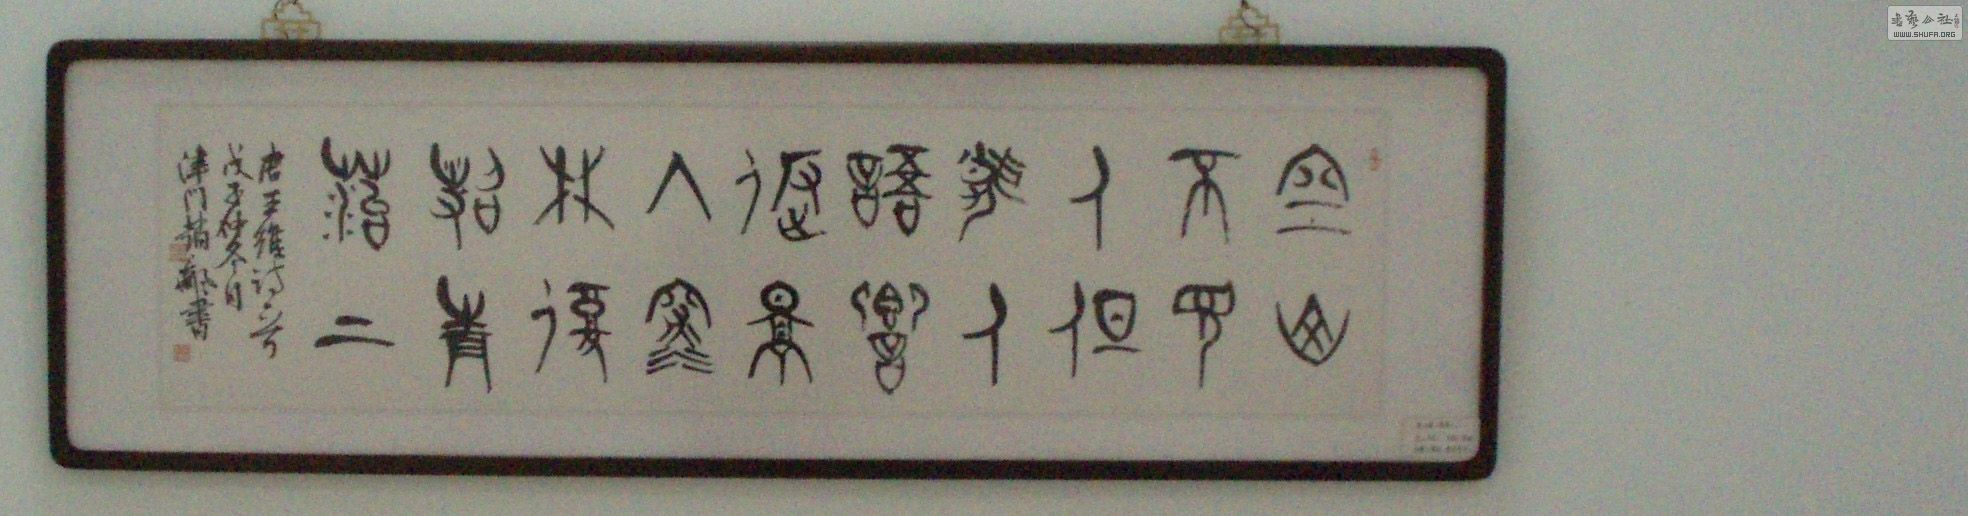 空山
不見
人但
聞人
語響
返景
入深
林復
照青
苔上
唐王維詩一首
戊子仲冬月
津門書
書藝公社
WWW.SHUFA.ORG